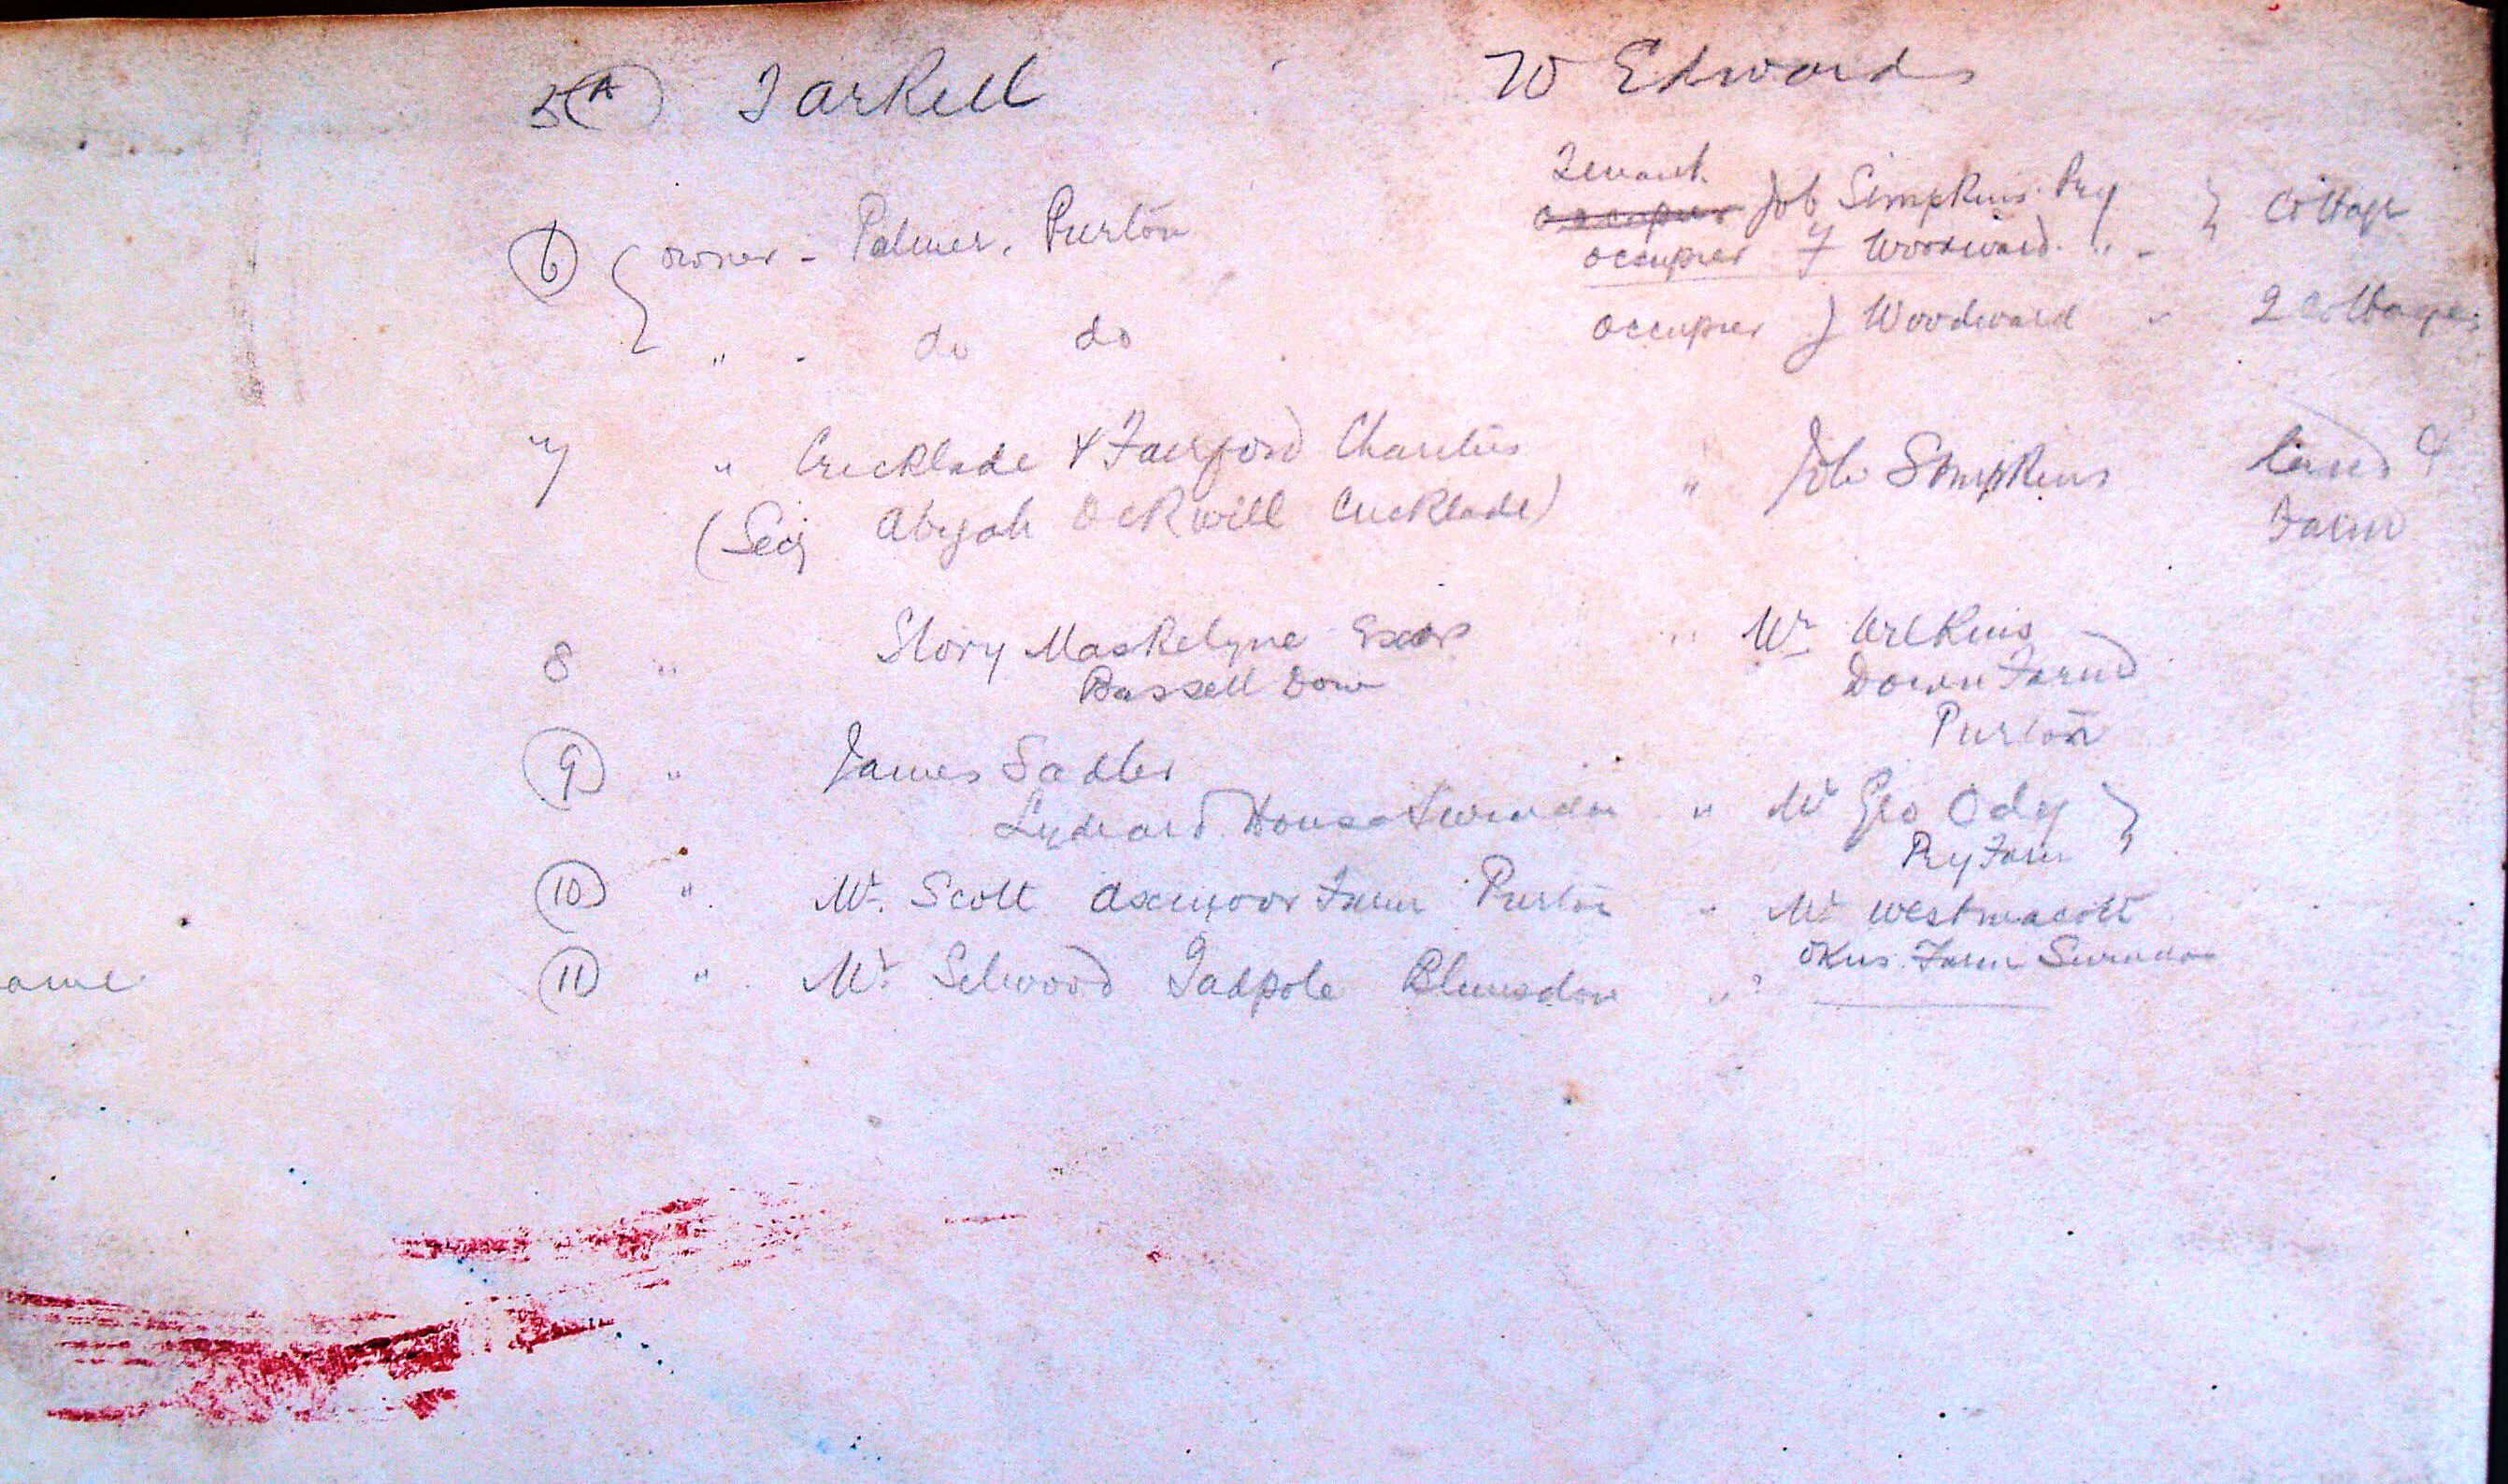 5(A) Tarkell W Edwards
Tenant
(6) { owner - Palmer. Purton occupier Job Simpkins. Pry } Cottage
occupier J Woodward. " -
" - do do occupier J Woodward " 2 Cottages
7 " Cricklade & Fairford Charities " Job Simpkins land &
(Secy Abijah Ockwill Cricklade) Farm
8 " Story Maskelyne Exors " Mr Wilkins
Bassett Down Down Farm
Purton
(9) " James Sadler
Lydiard House Swindon " Mr Geo Ody }
Pry Farm
(10) " Mr. Scott Farm Purton " Mr Westmacott
Okus. Farm Swindon
(11) " Mr Selwood Tadpole Blunsdon " ?
ame